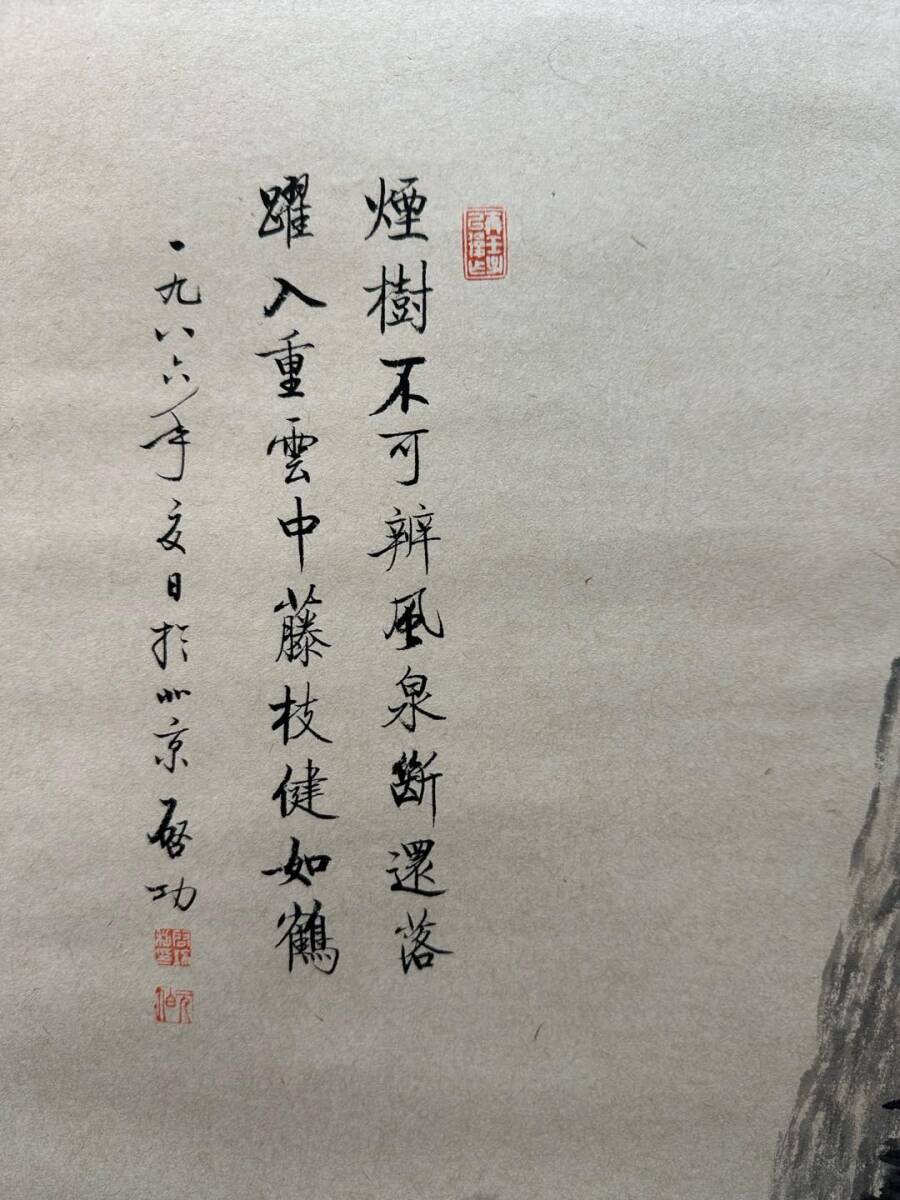 煙樹不可辨風泉斷還落
躍入重雲中藤枝健如鶴
一九八六年夏日於北京 啓功
元白